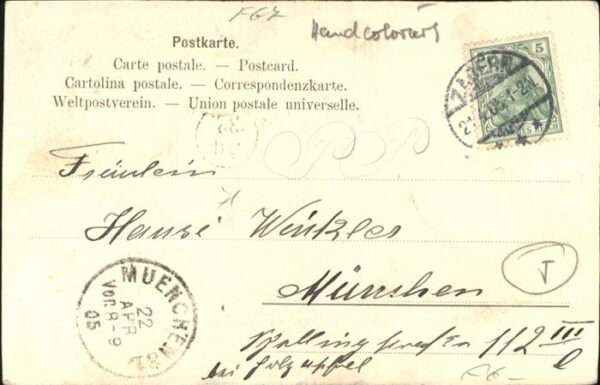 F67
Handcoloriert
Postkarte.
Carte postale. — Postcard.
Cartolina postale. — Correspondenzkarte.
Weltpostverein. — Union postale universelle.
5
ZABERN
Fräulein
Hansi Winkler
München
112 III
bei
J
MUENCHEN
22
APR
Vor. 8-9
05